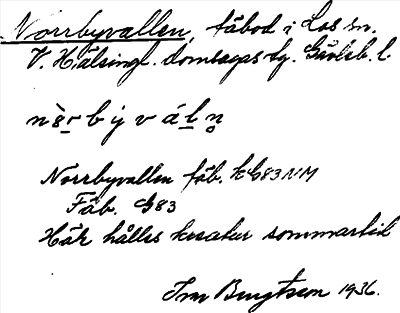 Norrbyvallen, fäbod i Los sn.
V. Hälsingl. domsagas tg. Gävleb. l.
Norrbyvallen fäb. KG83NM
Fäb. G83
Här hålles kreatur sommartid
Bengtsson 1936.